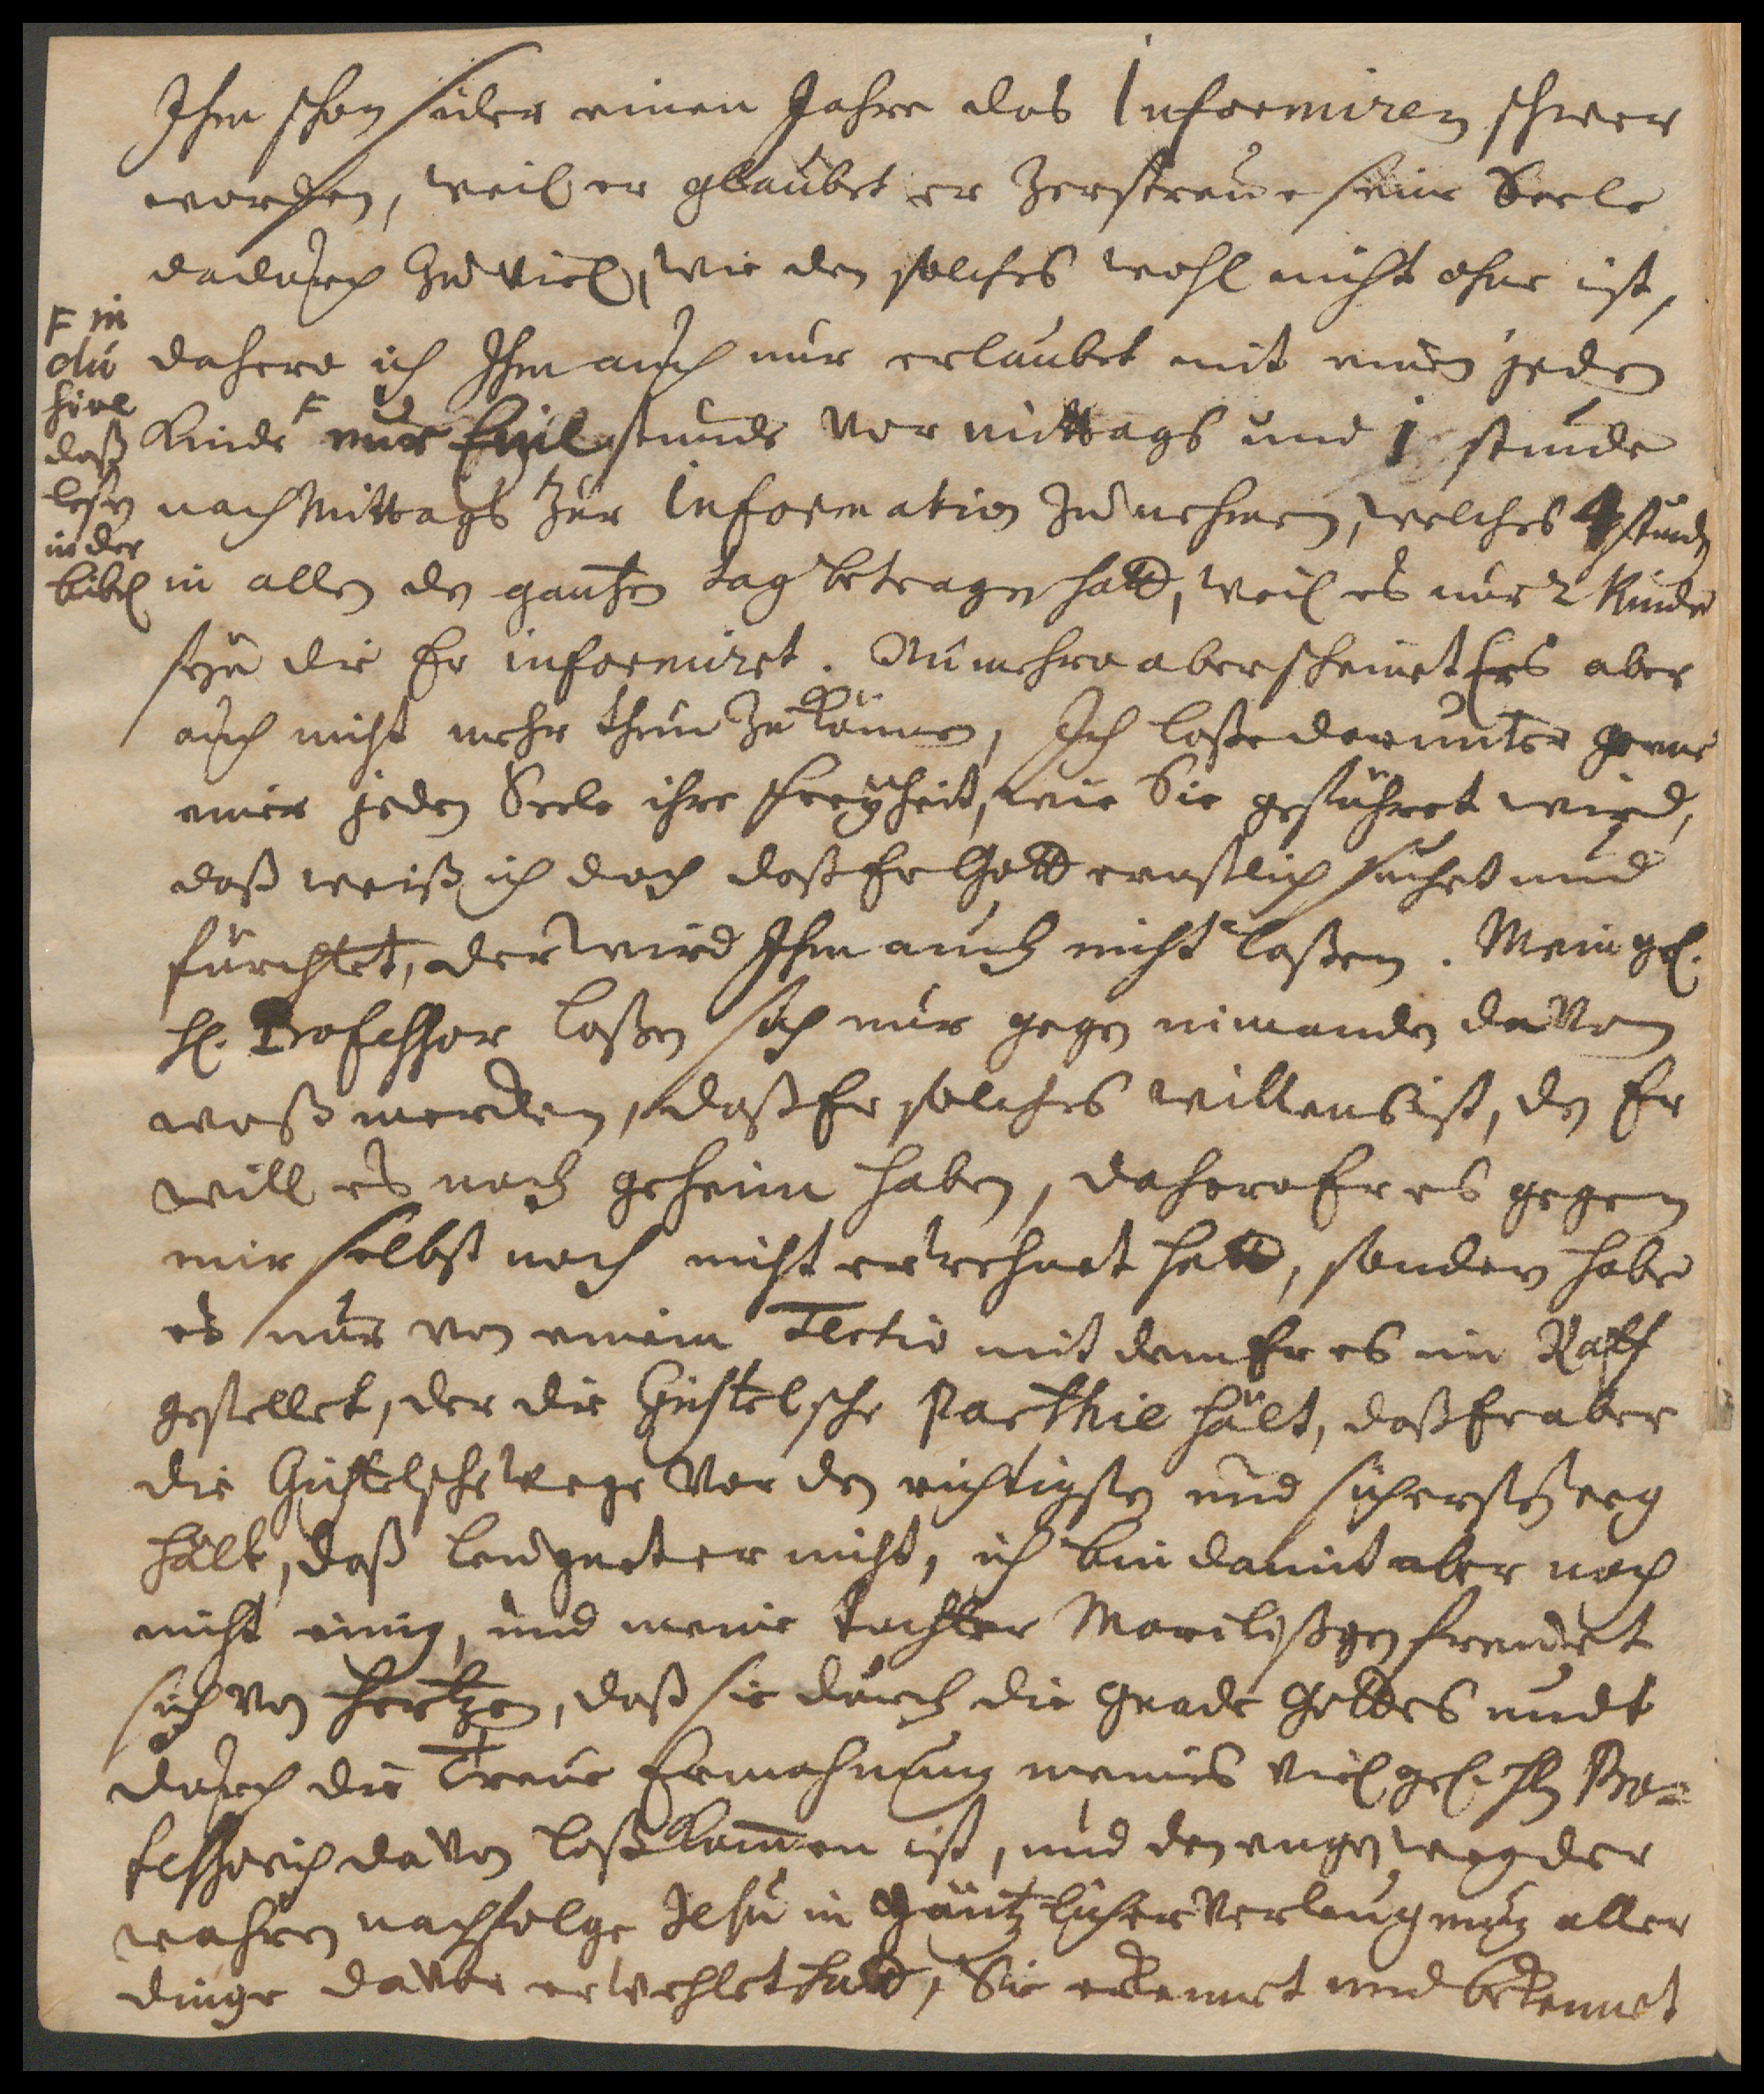 Ihm schon sieder einen Jahre das Informiren schwer
worden, weil er glaubet er Zerstreue seine Seele
dadurch Zu viel, wie den solches wohl nicht ohne ist,
dahero ich Ihm auch nur erlaubet mit einen jeden
Kinde F nur Eine stunde Vor mittags und 1 stunde
nach Mittags Zur Information Zu nehmen, welches 4 stunden
in allen den gantzen tag betragen hatt, weil es nur 2 Kinder
seyn die Er informiret. Nunmehro aber scheinet Ers aber
auch nicht mehr thun Zu können, Ich laße darunter gerne
einer jeden Seele ihre freyheit, wie Sie geführet wird,
daß weiß ich doch daß Er Gott ernstlich suchet und
fürchtet, der wird Ihm auch nicht laßen. Mein gel.
H. Professor laßen sich nur gegen niemanden davon
waß mercken, daß Er solches willens ist, den Er
will es noch geheim haben, dahero Er es gegen
mir selbst noch nicht erwehnet hatt, sondern habe
es nur von einem Tertio mit dem Er es im Rath
gestellet, der die Gichtelsche Parthie hält, daß Er aber
die Gichtelsche wege Vor den richtigsten und sichersten weg
hält, daß leugnet er nicht, ich bin damit aber noch
nicht einig, und meine tochter Marilißgen freuet
sich von Hertzen, daß sie durch die gnade Gottes undt
durch die Treue Ermahnung meines viel gel. Hn Pro-
fessoris davon loß kommen ist, und den engen weg der
wahren nachfolge Jesu in gäntzlicher Verleugnung aller
dinge davor erwehlet hatt, Sie erkennet und bekennet
F in
du
hive
daß
lesen
in der
bibel